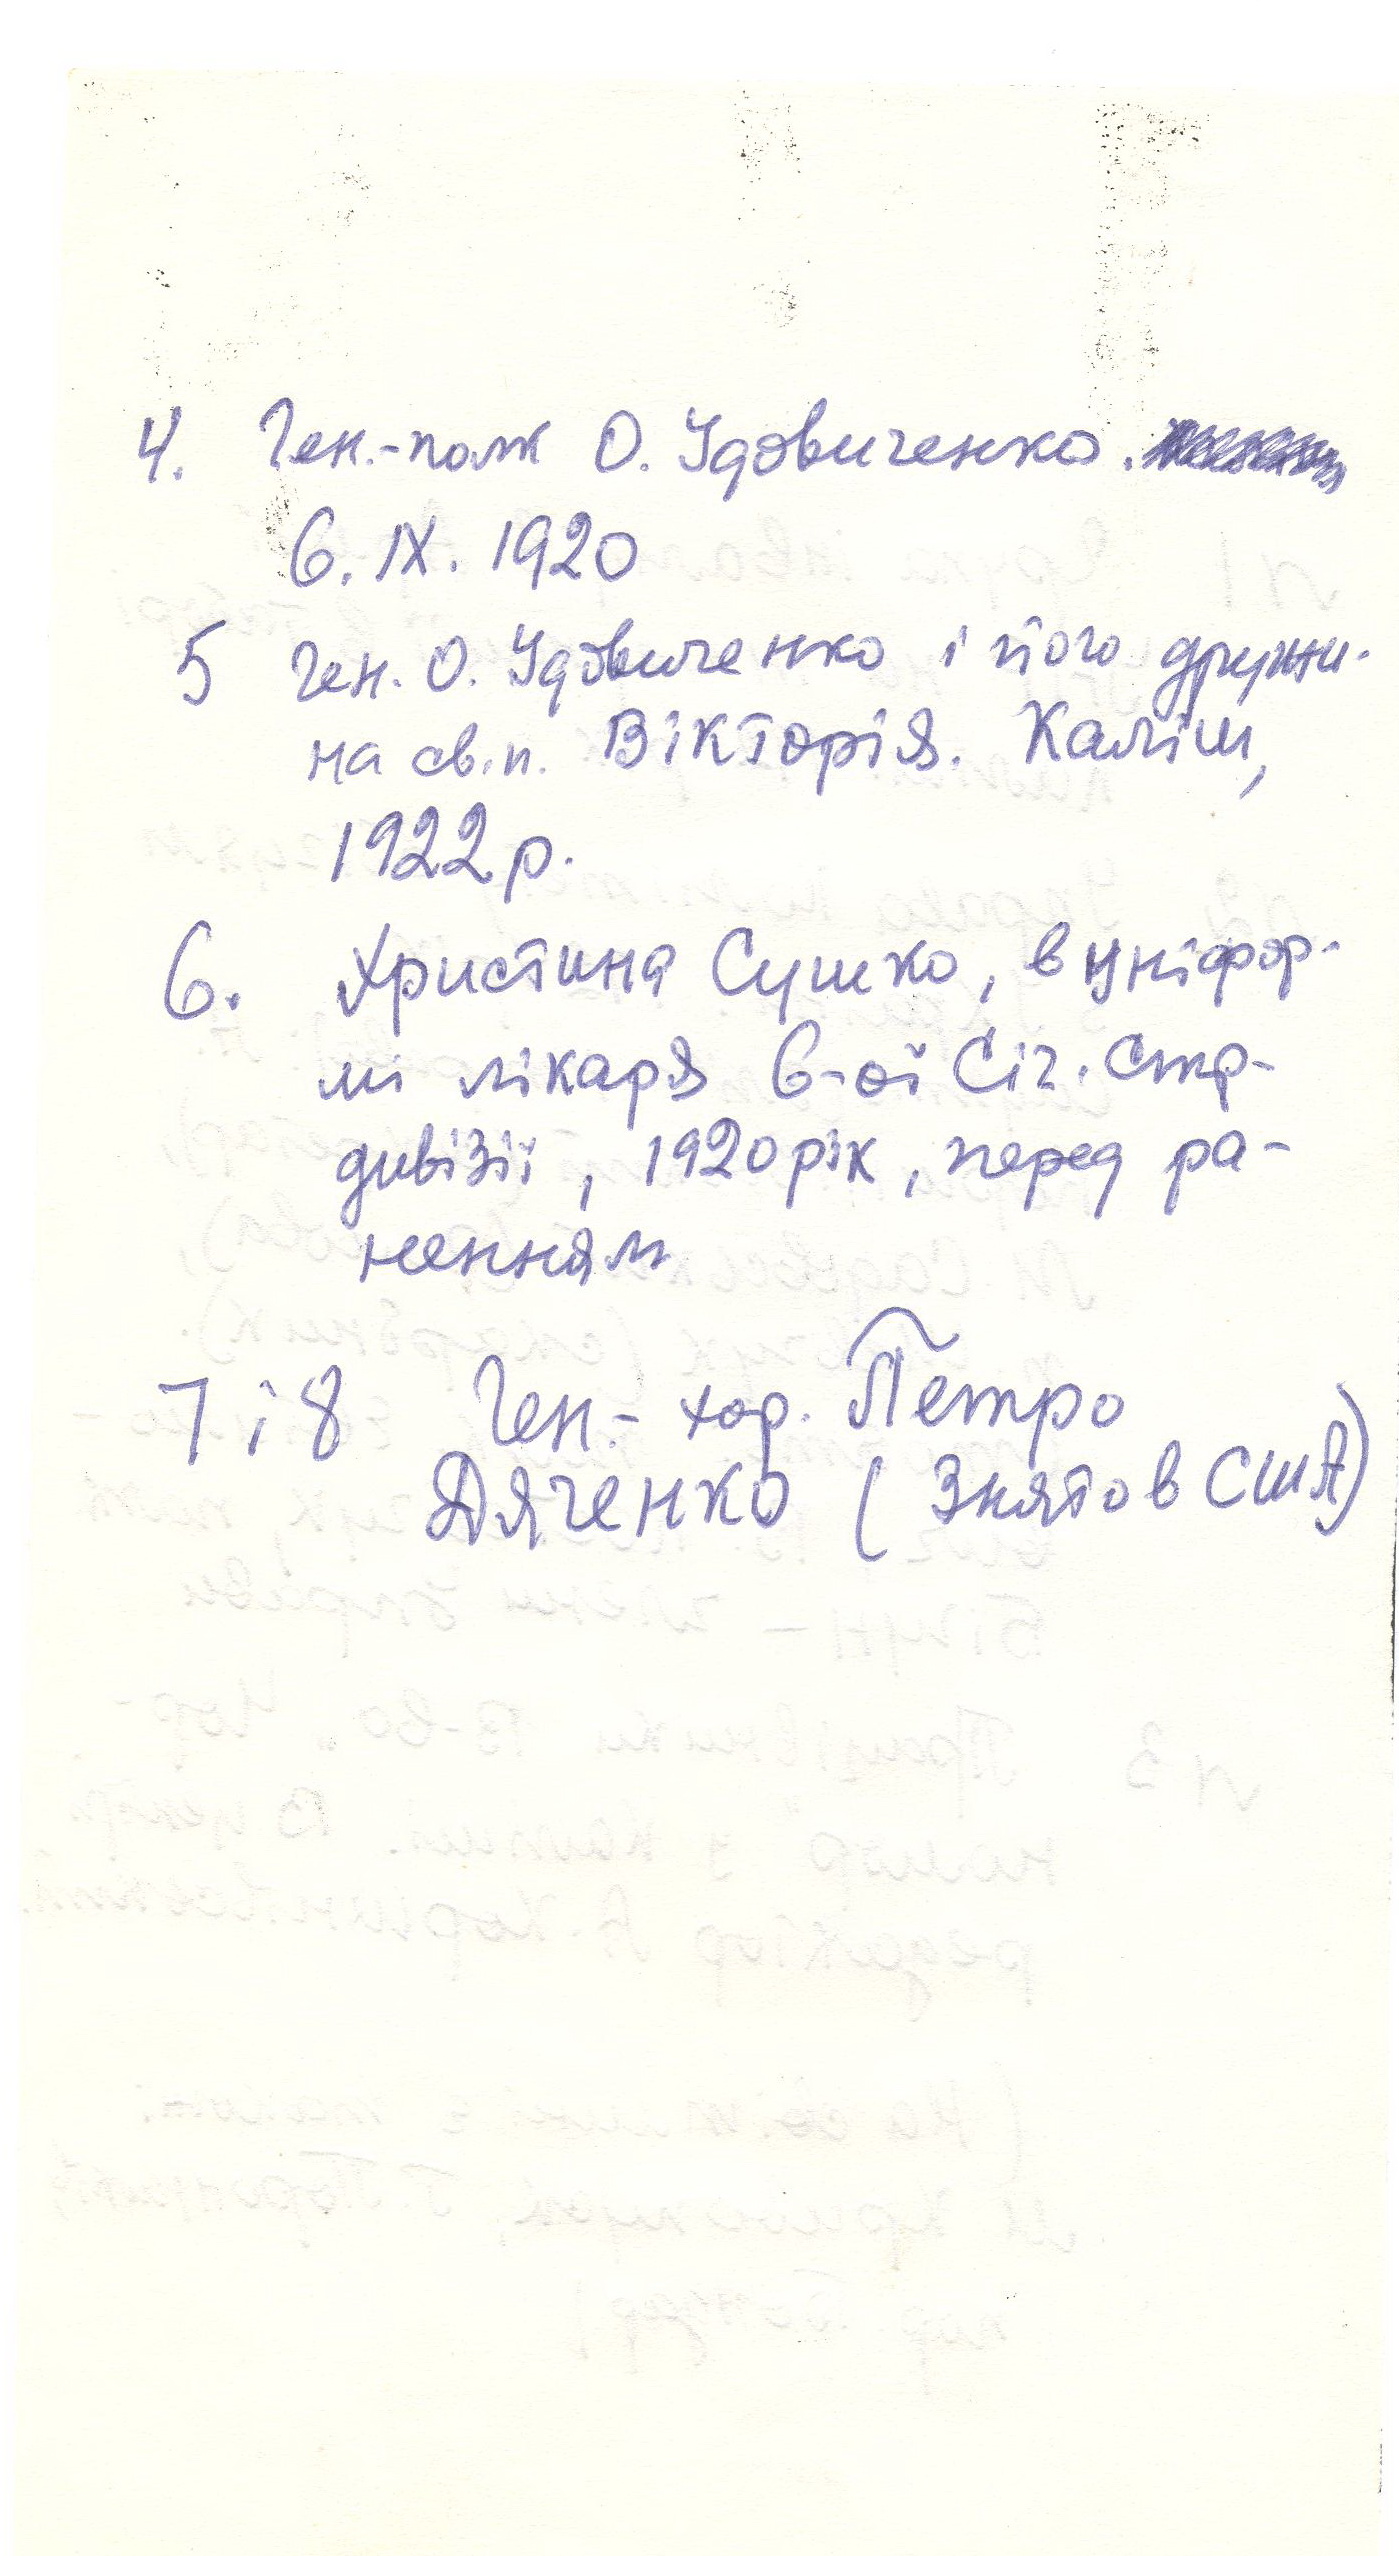 4. Ген.-полк О. Удовиченко.
6. IX. 1920
5 Ген. О. Удовиченко і його дружи-
на св.п. Вікторія. Каліш,
1922 р.
6. Христина Сушко, в уніфор-
мі лікаря 6-ої Січ. Стр-
дивізії, 1920 рік, перед ра-
ненням
7 і 8 Ген.-хор. Петро
Дяченко (Знято в США)